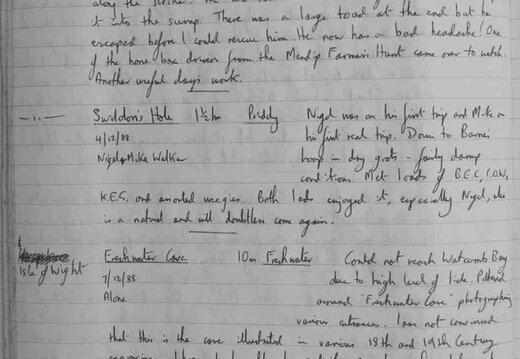 along the
it into the sump. There was a large toad at the end but he
escaped before I could rescue him. He now has a bad headache! One
of the horse box drivers from the Mendip Farmers Hunt came over to watch.
Another useful days work.
—..— Swildon's Hole 1½ hrs Priddy Nigel was on his first trip and Mike on
4/12/88 his first real trip. Down to Barnes
Nigel & Mike Walker Loop in dry grots - fairly damp
conditions. Met loads of B.E.C, C.O.W,
K.E.G. and assorted weegies. Both lads enjoyed it, especially Nigel, who
is a natural and will doubtless come again.
Isle of Wight Freshwater Cave 10m Freshwater Could not reach Watcombe Bay
7/12/88 due to high level of tide. Pottered
Alone around "Freshwater Cave" photographing
various entrances. I am not convinced
that this is the cave illustrated in various 18th and 19th Century